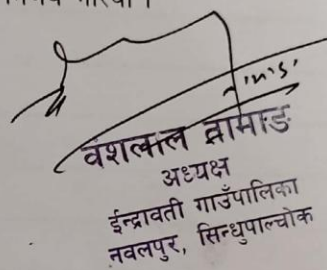 वंशलाल तामाङ
अध्यक्ष
ईन्द्रावती गाउँपालिका
नवलपुर, सिन्धुपाल्चोक